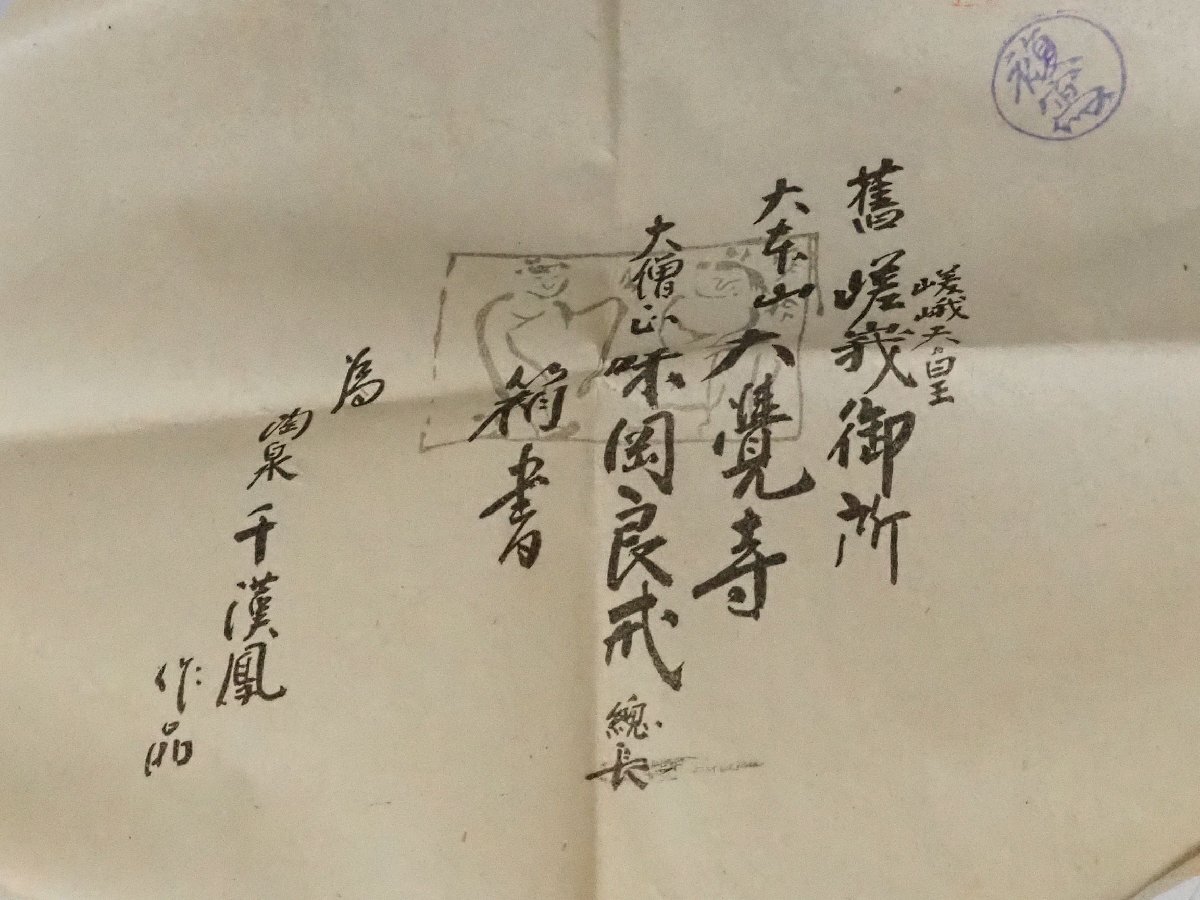 嵯峨天皇
舊嵯峩御所
大本山大覺寺
大僧正味岡良戒總長
箱書
為
陶泉千漢鳳
作品